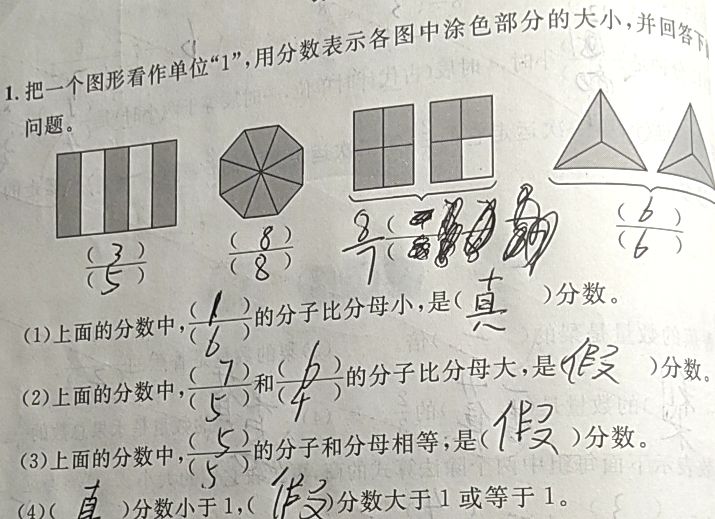 1. 把一个图形看作单位“1”,用分数表示各图中涂色部分的大小,并回答下
问题。
(3)/(5) (8)/(8) 8/7 (6)/(6)
(1)上面的分数中,(1)/(6)的分子比分母小,是(真)分数。
(2)上面的分数中,(7)/(5)和(6)/(4)的分子比分母大,是(假)分数。
(3)上面的分数中,(5)/(5)的分子和分母相等,是(假)分数。
(4)(真)分数小于1,(假)分数大于1或等于1。